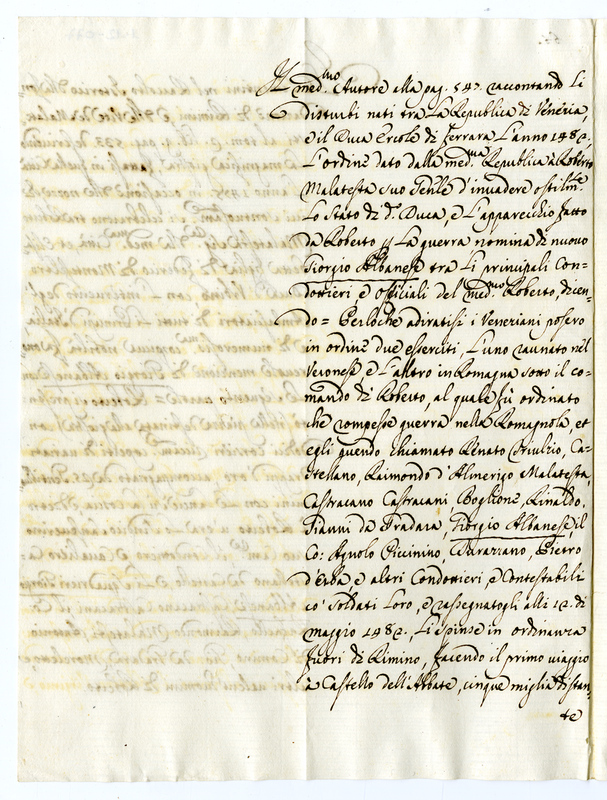 Il med.mo Autore alla pag. 547. raccontando Li
disturbi nati tra La Republica di Venezia,
e il Duca Ercole di Ferrara L'anno 1482.
L'ordine dato dalla med.ma Republica à Roberto
Malatesta suo Gen.le d'invadere ostilm.te
Lo Stato di d.o Duca, e L'apparecchio fatto
da Roberto p La guerra nomina di nuovo
Giorgio Albanese tra Li principali Con=
dottieri, e officiali del med.mo Roberto, dicen=
do = Perloche adiratisi i Veneziani posero
in ordine due esserciti, L'uno raunato nel
Veronese e L'altro in Romagna sotto il co=
mando di Roberto, al quale fù ordinato
che rompesse guerra nella Romagnola, et
egli avendo chiamato Renato Triulzio, Ca=
stellano, Raimondo d'Almerigo Malatesta,
Castracano Castracani Boglione, Rinaldo,
Gianni da Tradara, Giorgio Albanese, il
Co: Agnolo Piccinino, Pietro
d'Erba e altri Condottieri, e Contestabili
co' Soldati Loro, e rassegnatogli alli 12. di
maggio 1482. Li spinse in ordinanza
fuori di Rimino, facendo il primo viaggio
à Castello dell'Abbate, cinque miglia distan,
te